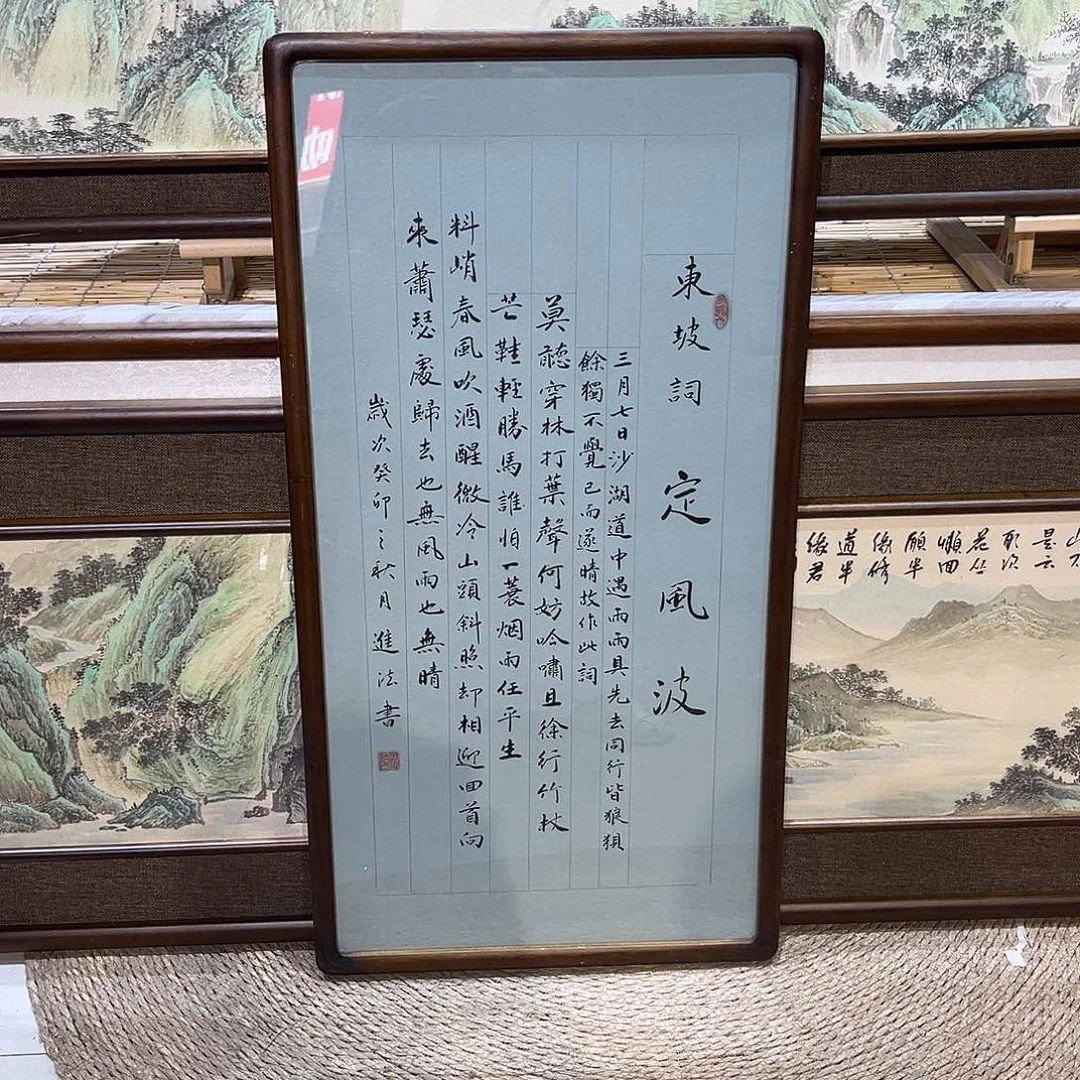 東坡詞 定風波
三月七日沙湖道中遇雨雨具先去同行皆狼狽
餘獨不覺已而遂晴故作此詞
莫聽穿林打葉聲何妨吟嘯且徐行竹杖
芒鞋輕勝馬誰怕一蓑烟雨任平生
料峭春風吹酒醒微冷山頭斜照却相迎回首向
來蕭瑟處歸去也無風雨也無晴
歲次癸卯之秋月進法書
是云
取次
花丛
懶回
顧半
緣修
道半
緣君